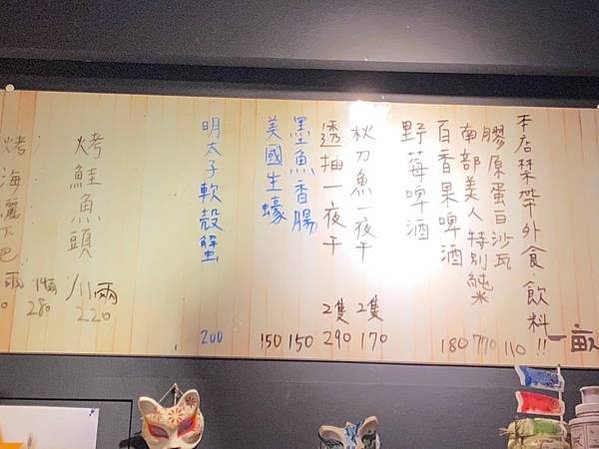 本店禁帶外食.飲料!!
一畝
膠原蛋白沙瓦 110
南部美人特別純米 770
百香果啤酒 180
野莓啤酒
秋刀魚一夜干 2隻 170
透抽一夜干 2隻 290
墨魚香腸 150
美國生蠔 150
明太子軟殼蟹 200
烤鮭魚頭 /兩 220
280
烤海鱺下巴